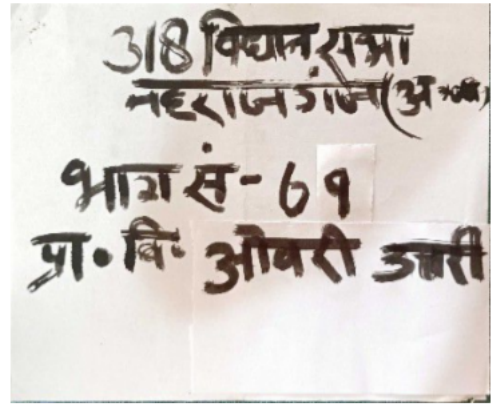 318 विधान सभा
महराजगंज (अ०जा०)
भाग सं - 69
प्रा० वि० ओबरी उत्तरी